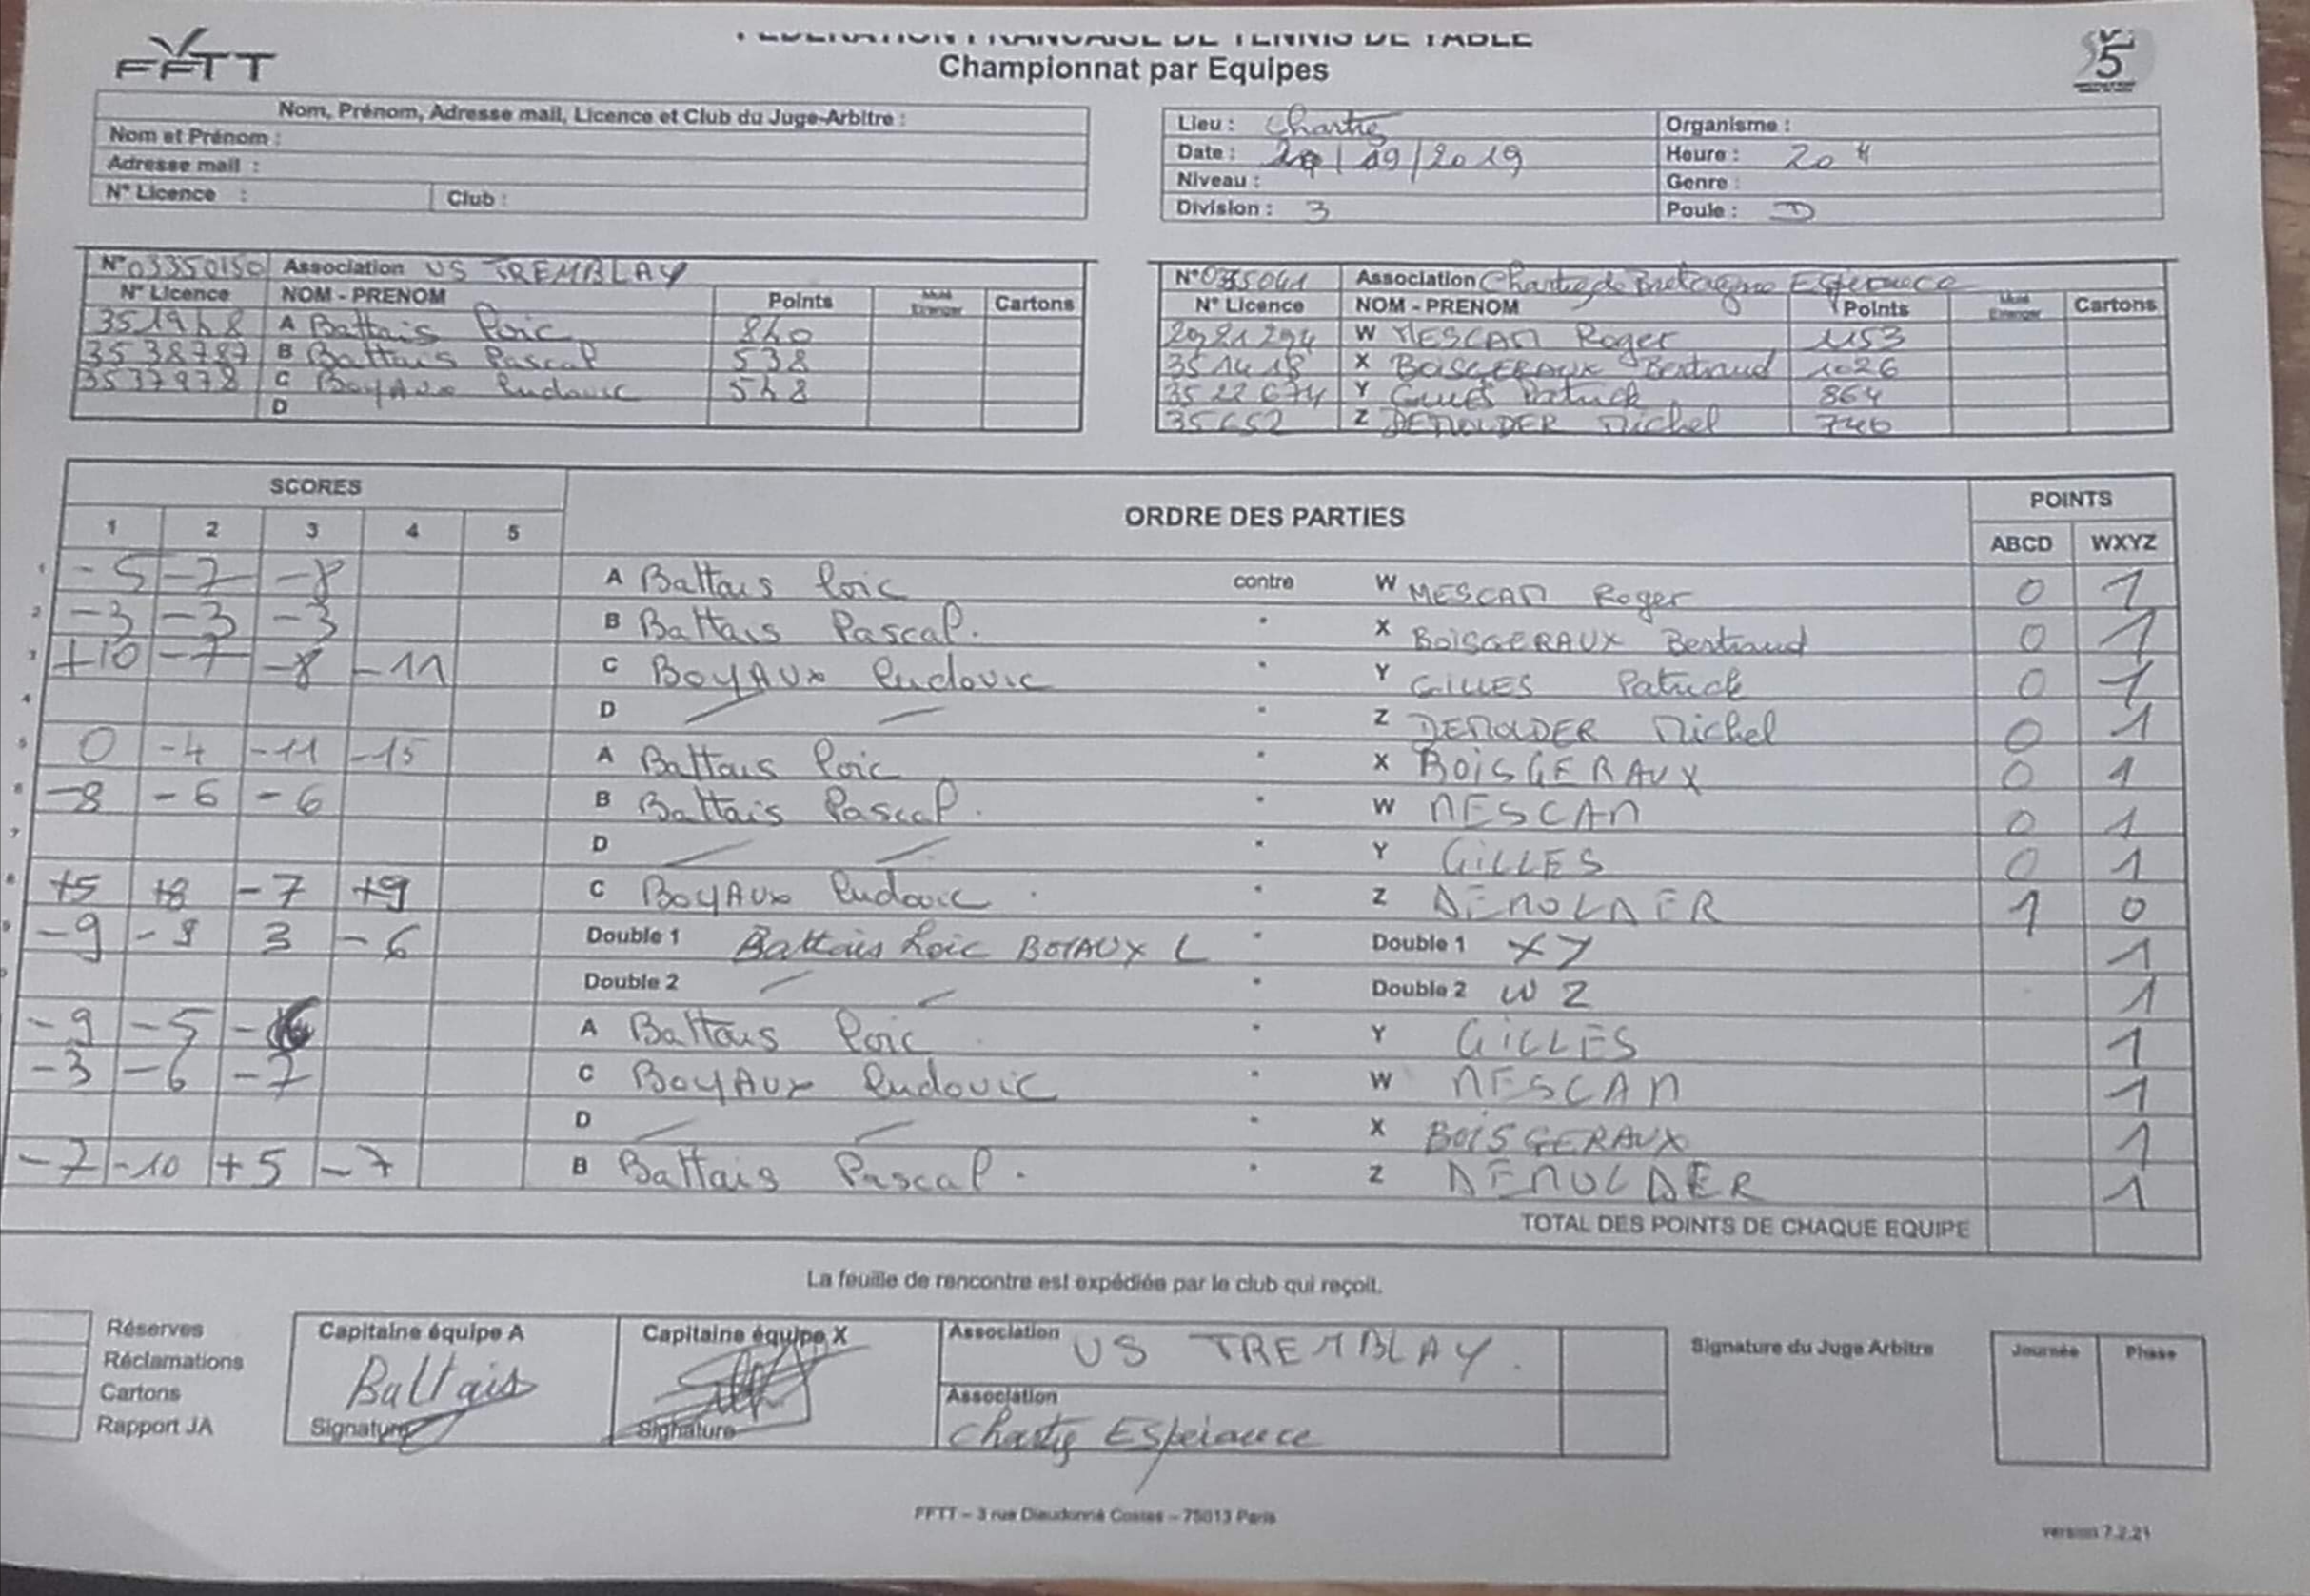 FEDERATION FRANCAISE DE TENNIS DE TABLE
FFTT
Championnat par Equipes
Nom, Prénom, Adresse mail, Licence et Club du Juge-Arbitre :
Nom et Prénom :
Adresse mail :
N° Licence : Club :
Lieu : Chartres Organisme :
Date : /09/2019 Heure : 20 H
Niveau : Genre :
Division : 3 Poule : D
N° 03350150 Association US TREMBLAY
N° Licence NOM - PRENOM Points Cartons
A Battais Loic 840
3538787 B Battais Pascal 538
3537978 C BoyAux Ludovic 548
D
N° 0335041 Association Chartres de Bretagne Espérance
N° Licence NOM - PRENOM Points Cartons
2921294 W MESCAM Roger 1153
351418 X BOISGERAUX Bertrand 1026
3522674 Y Gilles Patrick 864
35652 Z DEMOLDER Michel 746
SCORES ORDRE DES PARTIES POINTS
1 2 3 4 5 ABCD WXYZ
1 -5 -7 -8 A Battais Loic contre W MESCAM Roger 0 1
2 -3 -3 -3 B Battais Pascal. " X BOISGERAUX Bertrand 0 1
3 +10 -7 -8 -11 C BOYAUX Ludovic " Y GILLES Patrick 0 1
4 D " Z DEMOLDER Michel 0 1
5 0 -4 -11 -15 A Battais Loic " X BOISGERAUX 0 1
6 -8 -6 -6 B Battais Pascal. " W MESCAM 0 1
7 D " Y GILLES 0 1
8 +5 +8 -7 +9 C BOYAUX Ludovic " Z DEMOLDER 1 0
9 -9 -9 3 -6 Double 1 Battais Loic BOYAUX L " Double 1 XY 1
Double 2 " Double 2 W Z 1
-9 -5 -6 A Battais Loic " Y GILLES 1
-3 -6 -7 C BOYAUX Ludovic " W MESCAM 1
D " X BOISGERAUX 1
-7 -10 +5 -7 B Battais Pascal. " Z DEMOLDER 1
TOTAL DES POINTS DE CHAQUE EQUIPE
La feuille de rencontre est expédiée par le club qui reçoit.
Réserves
Réclamations
Cartons
Rapport JA
Capitaine équipe A
Battais
Signature
Capitaine équipe X
Signature
Association US TREMBLAY.
Association
Chartres Espérance
Signature du Juge Arbitre
Journée Phase
FFTT – 3 rue Dieudonné Costes – 75013 Paris
version 7.2.21